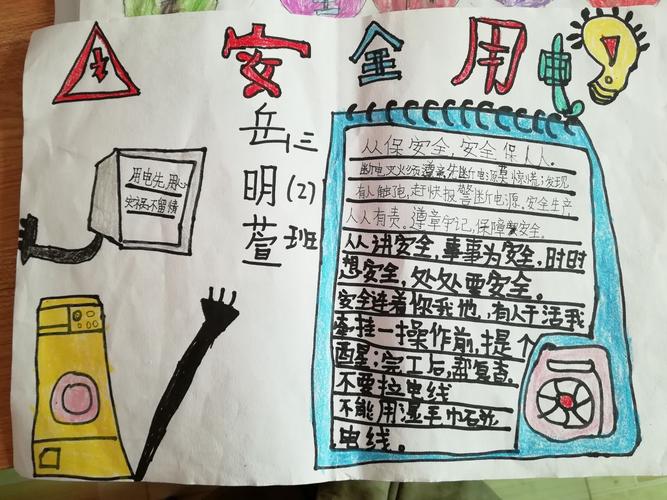 安全用电
岳明萱
三(2)班
用电先用心
安全不留情
人人保安全,安全保人人。
断电灭火须遵先断电源莫惊慌;发现
有人触电,赶快报警断电源。安全生产
人人有责。遵章守记,保障安全。
人人讲安全,事事为安全,时时
想安全,处处要安全。
安全连着你我他,有人干活我
牵挂一操作前,提个
酉星;完工后,都复查。
不要拉电线
不能用湿毛巾
电线。